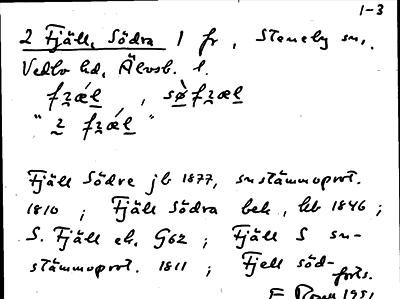 1-3
2 Fjäll, Södra 1 fr, Steneby sn,
Vedbo hd, Älvsb. l.
Fjäll Södre jb 1877, snstämmoprot.
1810; Fjäll Södra bek, hb 1846;
S. Fjäll ek. G62; Fjäll S sn-
stämmoprot. 1811; Fjell söd-
forts.
F 1951